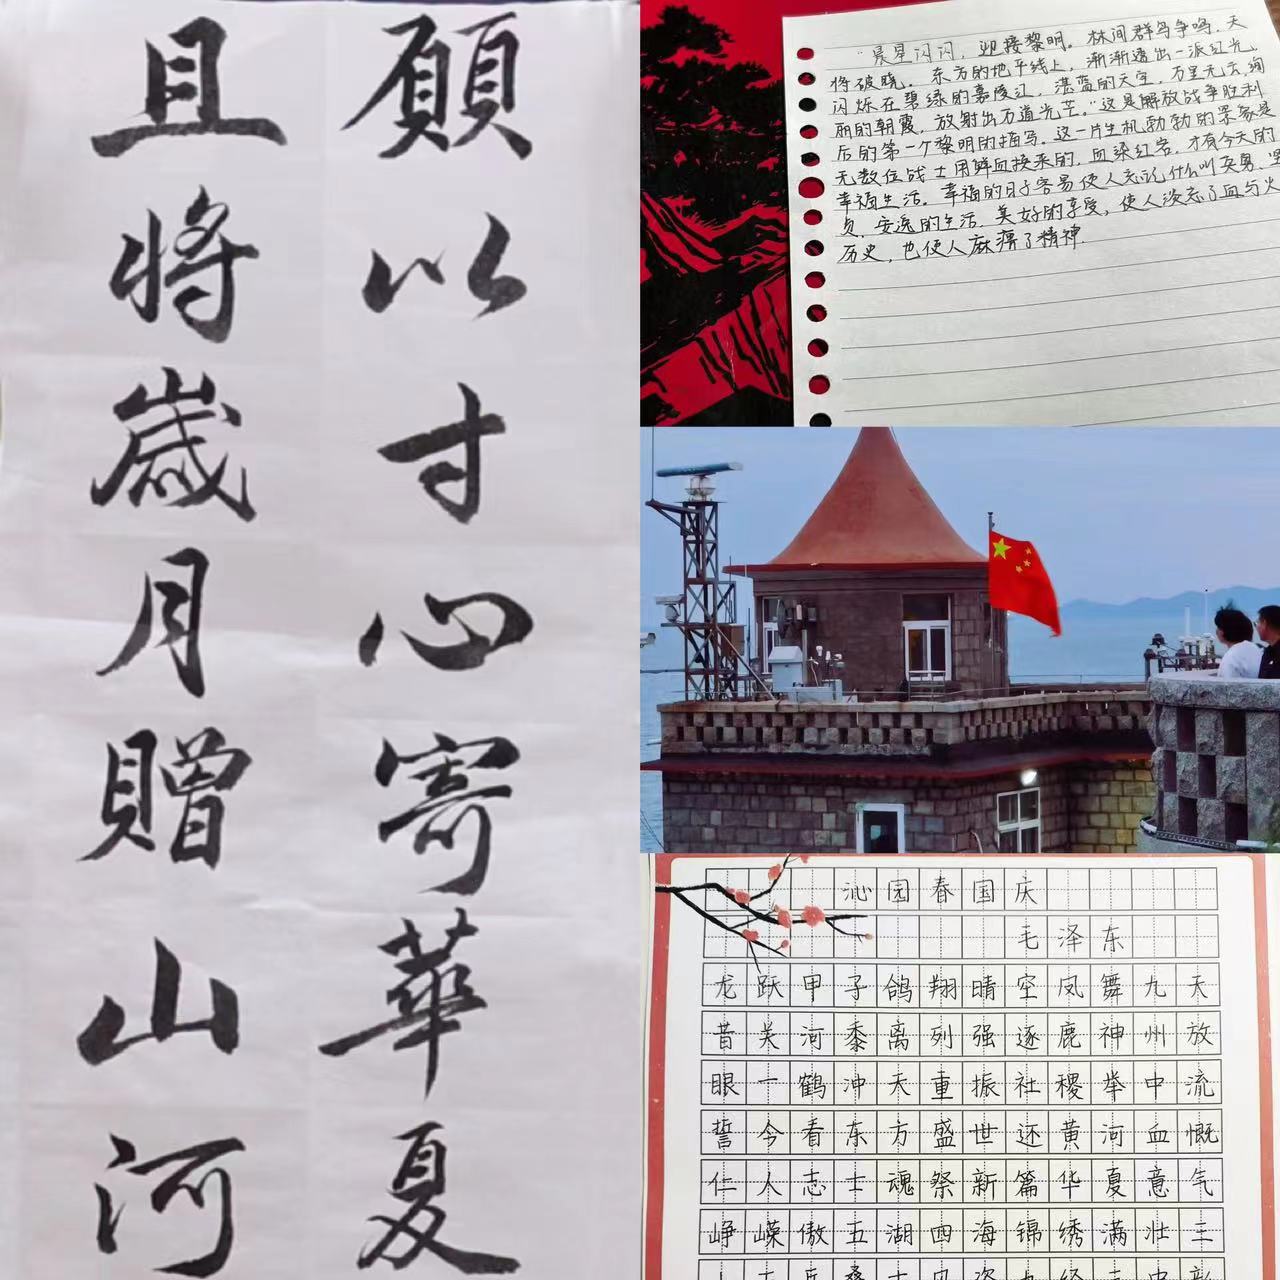 願以寸心寄華夏
且將歲月贈山河
"晨星闪闪，迎接黎明。林间群鸟争鸣，天
将破晓。东方的地平线上，渐渐透出一派红光，
闪烁在碧绿的嘉陵江，湛蓝的天空，万里无云，绚
丽的朝霞，放射出万道光芒。"这是解放战争胜利
后的第一个黎明的描写。这一片生机勃勃的景象是
无数位战士用鲜血换来的，血染红岩，才有今天的
幸福生活。幸福的日子容易使人忘记什么叫英勇、坚
贞，安逸的生活、美好的享受，使人淡忘了血与火
历史，也使人麻痹了精神.
沁园春国庆
毛泽东
龙跃甲子鸽翔晴空凤舞九天
昔关河黍离列强逐鹿神州放
眼一鹤冲天重振社稷举中流
誓今看东方盛世还黄河血慨
仁人志士魂祭新篇华夏意气
峥嵘傲五湖四海锦绣满壮三